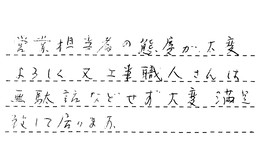 営業担当者の態度が大変
よろしく又工事職人さんは
無駄話などせず大変満足
致して居ります。